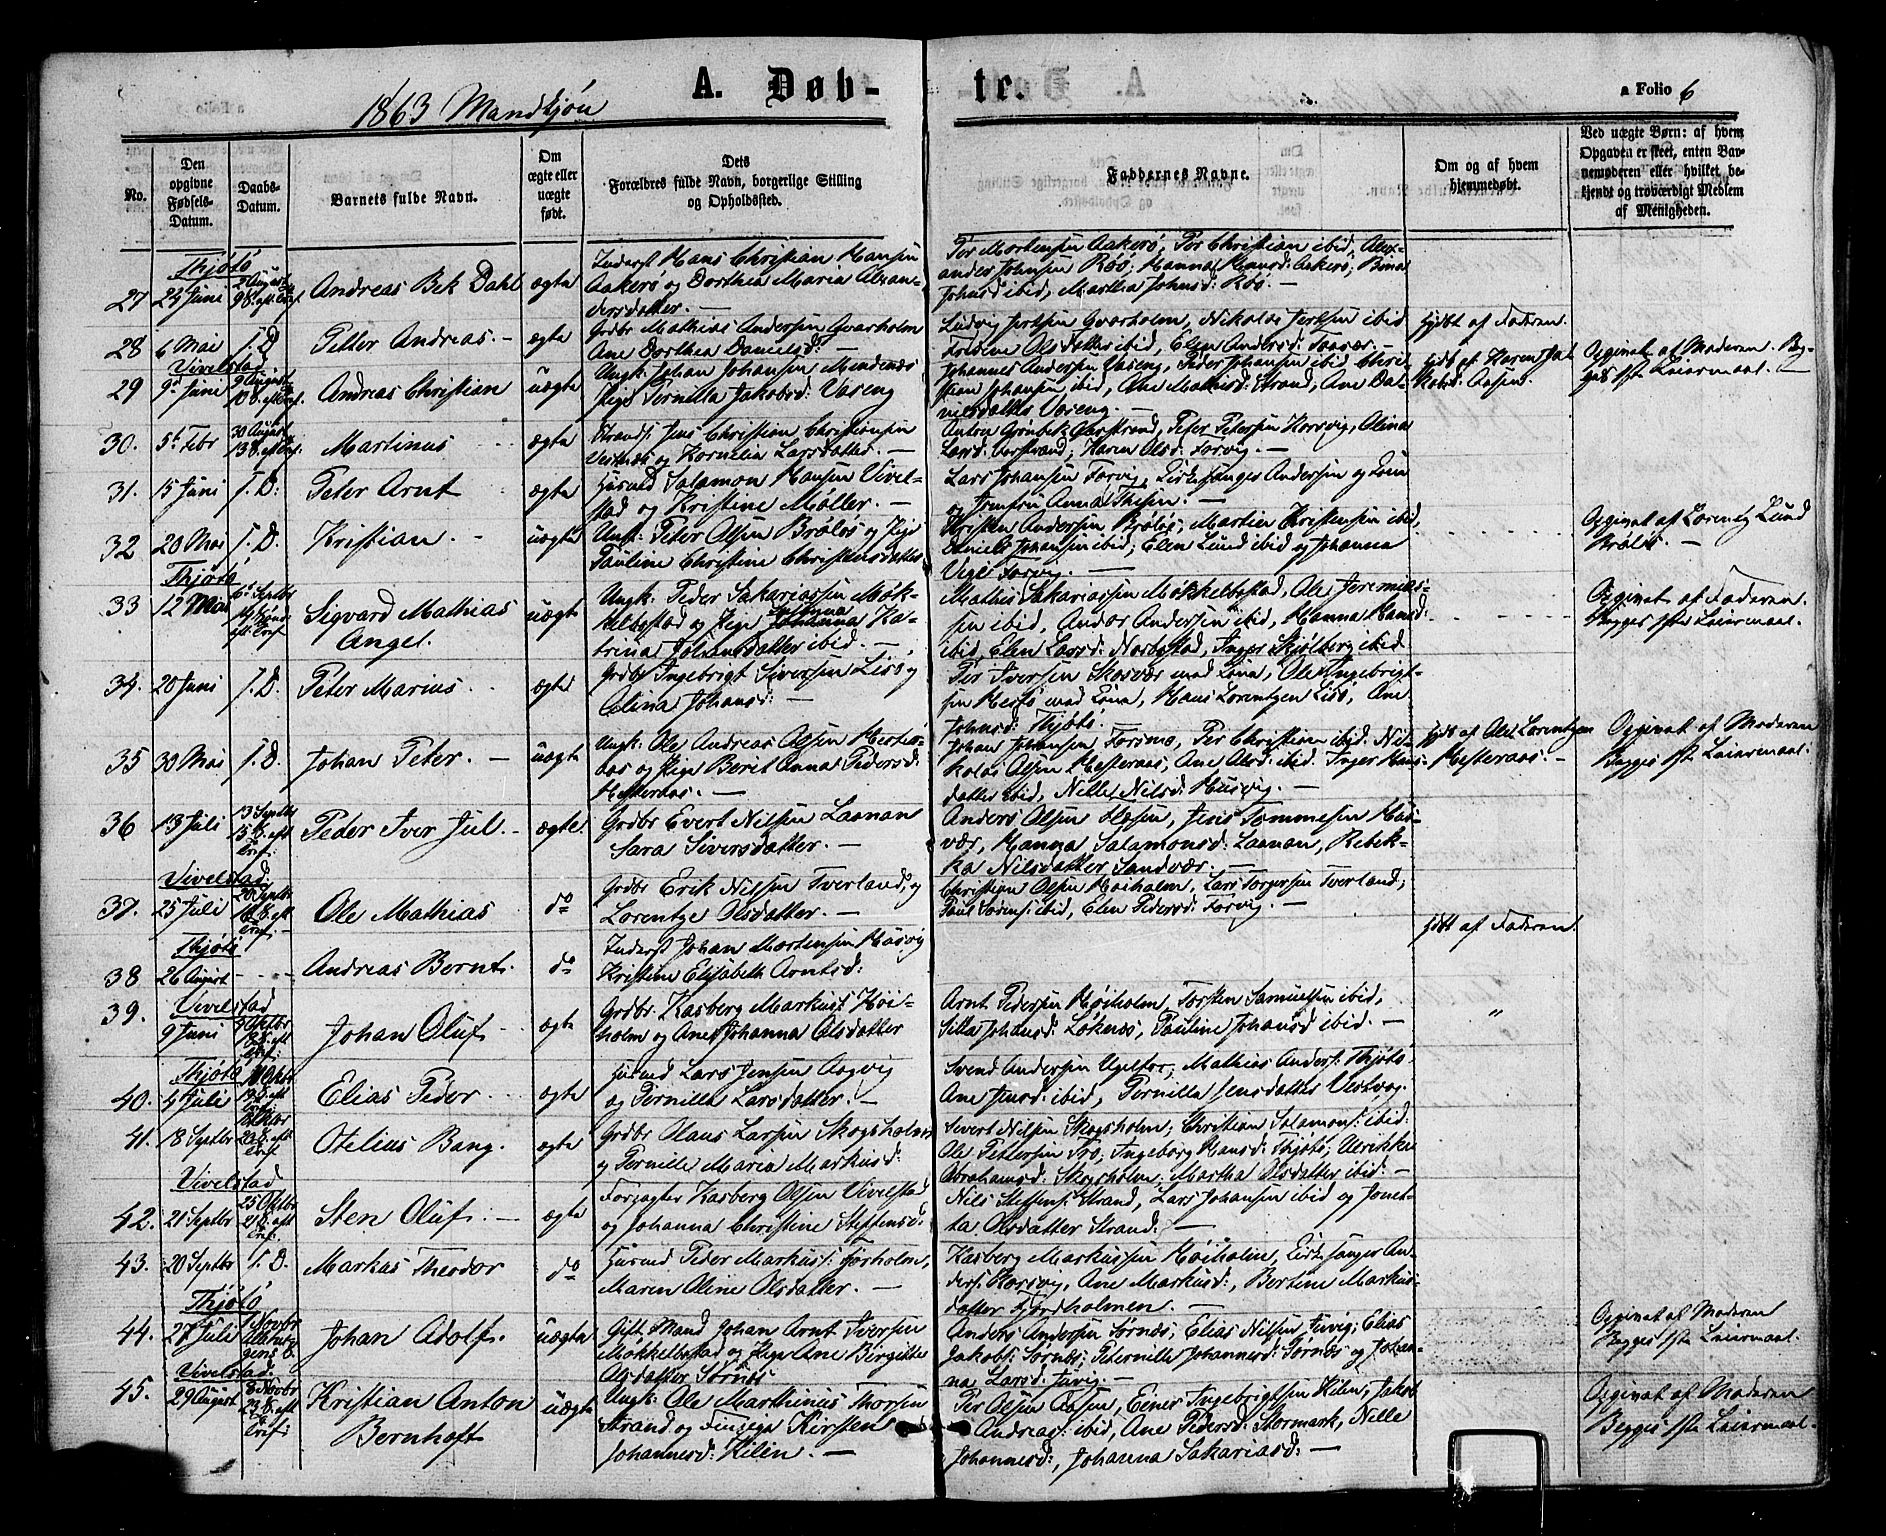 A. Døb-
te.
a Folio 6
1863 Mandkjøn
No.
Den opgivne Fødsels-Datum.
Daabs-Datum.
Barnets fulde Navn.
Om ægte eller uægte født.
Dets Forældres fulde Navn, borgerlige Stilling og Opholdssted.
Faddernes Navne.
Om og af hvem hjemmedøbt.
Ved uægte Børn: af hvem Opgaven er skeet, enten Barnemoderen eller hvilket bekjendt og troværdigt Medlem af Menigheden.
Thjøtø
27 24 Juni
Andreas Bek Dahl ægte
Inderst Hans Christian Hansen
Aakerø og Dorthea Maria Alexan-
dersdatter. —
Per Mortensen Aakerø, Per Christian ibid, Alex-
ander Johnsen Røø; Hanna Hansd: Aakerø; Bina
Johnsd ibid, Martha Johnsd: Røø. —
28 6 Mai T. D
Petter Andreas. — ægte
Grdbr Mathias Andersen Qvarholm
Ane Dorthea Danielsd: —
Ludvig Qvarholm, Nikolai ibid
Olsdatter ibid, Elen Andersd:
hjdbt af Faderen.
Vivelstad
29 9de Juni
Andreas Christian uægte
Ungk: Johan Johansen Mindenæs
Pige Pernilla Jakobsd: Vaseng
Johannes Andersen Vaseng, Peder Johansen ibid Chri-
stian Johansen ibid, Ane Mathisd: Strand, Ane Da-
nielsdatter Vaseng. —
hjdt af Karen Ja-
kobsd: Aasen.
Opgivet af Moderen. Beg-
ges 1ste Leiermaal. —
30. 5te Febr
30 August
Martinus ægte
Strands. Jens Christian Christiansen
og Kornelia Larsdatter. —
Peter Petersen Horsvig, Alina
Larsd: Karen Olsd: Forvig. —
31. 15 Juni T. D:
Peter Arnt ægte
Husmd Salamon Hansen Vivel-
stad og Kristine Møller. —
Lars Johansen Forvig, Kirkesanger Andersen og Kone
og Jomfru Anna Thesen. —
32 20 Mai T. D.
Kristian. — uægte
Ungk: Peter Olsen Brøløs og Pige
Pauline Christine Christensdatter
Kristen Andersen Brøløs, Martin Christensen ibid,
Daniel Johansen ibid; Elen Lund ibid og Johanna
Forvig. —
Opgivet af Lorentz Lund
Brøløs. —
Thjøtø
33 12 Mai
Sigvard Mathias
Angel. uægte
Ungk: Peder Sakariassen Møk-
kelbostad og Pige Johanna Ka-
trina Johansdatter ibid. —
Mathis Sakariassen Møkkelbostad, Ole Jeremias-
sen ibid, Andor Andersen ibid, Hanna Hansd:
ibid, Elen Larsd: Norbostad, Inger Skjølberg ibid
Opgivet af Faderen.
Begges 1ste Leiermaal.
34. 20 Juni T. D.
Peter Marius. ægte
Grdbr Ingebrigt Siversen Lisø og
Olina Johansd: —
Per Iversen Skosvær med Kona, Ole Ingebrigt-
sen Hestø med Kona, Hans Lorentzen Lisø, Ane
Johnsd: Thjøtø.
35 30 Mai T. D.
Johan Peter. — uægte
Ungk: Ole Andreas Olsen Hester-
aas og Pige Berit Anna Pedersd:
Hesteraas. —
Johan Johansen Forsmo, Per Christian ibid. Ni-
kolai Olsen Hesteraas, Ane Olsd: ibid. Inger Hans-
datter ibid, Nille Nilsd: Husvig. —
hjdt af Ole Lorentzen
Hesteraas. —
Opgivet af Moderen
Begges 1ste Leiermaal. —
36 13 Juli
13 Septbr
15 S. eft
Tref.
Peder Iver Jul. — ægte.
Grdbr Evert Nilsen Laanan
Sara Siversdatter. —
Anders Olsen Flæsen, Jens Tommesen Had-
vær, Hanna Salamonsd: Laanan, Rebek-
ka Nilsdatter Sandvær. —
Vivelstad
37. 25 Juli
20 Septbr
16 S. eft
Tref.
Ole Mathias do
Grdbr Erik Nilsen Tverland, og
Lorentze Olsdatter. —
Christian Olsen Høiholm, Lars Torgersen Tverland,
Paul Sørens: ibid, Elen Pedersd: Forvig. —
Thjøtø
38 26 August
Andreas Bernt. do
Inderst Johan Mortensen Husvig
Kristine Elisabeth Arntsd:
hjdt af Faderen.
Vivelstad
39. 9 Juni
Johan Oluf. ægte
Grdbr. Kasberg Markuss: Høi-
holm og Ane Johanna Olsdatter
Arnt Pedersen Høiholm, Torsten Samuelsen ibid,
Silla Johansd: Løknæs, Pauline Johansd ibid. —
"
Thjøtø
40. 4 Juli
Elias Peder ægte
Husmd Lars Jensen Aagvig
og Pernille Larsdatter. —
Svend Andersen Mathias Anders: Thjøtø
Ane Jensd: ibid, Pernilla Jensdatter
41. 18 Septbr
Otelius Bang. ægte
Grdbr Olaus Larsen Skogsholm
og Pernille Maria Markusd:
Sivert Nilsen Skogsholm; Christian Salamons: ibid:
Ole Pettersen Tro; Ingeborg Hansd: Thjøtø; Ulrikke
Abrahamsd: Skogsholm; Martha Olsdatter ibid: —
Vivelstad
42. 21 Septbr
25 Oktbr
21 S. eft
Tref:
Sten Oluf. — ægte
Forpagter Kasberg Olsen Vivelstad
og Johanna Christine Steffensd:
Nils Steffens: Strand, Lars Johansen ibid og Jonet-
ta Olsdatter Strand: —
43. 20 Septbr T. D.
Markus Theodor do
Husmd Peder Markuss: Forholm,
Maren Oline Olsdatter. —
Kasberg Markussen Høiholm, Kirkesanger An-
ders: Horsvig, Ane Markusd:, Bertine Markus-
datter Fjordholmen. —
Thjøtø
44. 27 Juli
1 Novbr
Johan Adolf. uægte
Gift Mand Johan Arnt Iversen
Møkkelbostad og Pige Ane Birgitte
Olsdatter Sørnæs
Anders Andersen Sørnæs; Elias Nilsen Juvig; Elias
Jakobs: Sørnæs; Peternille Johannesd: Sørnæs og Johan-
na Larsd: Juvig. —
Opgivet af Moderen
Begges 1ste Leiermaal.
Vivelstad.
45. 29 August
8 Novbr
23 S. eft
Tref:
Kristian Anton
Bernhoft uægte
Ungk: Ole Marthinus Thorsen
Strand og Kirsten
Johannesd: Kilen. —
Per Olsen Aasen, Einer Ingebrigtsen Kilen, Jakob
Andreas: ibid, Ane Pedersd: Stormark, Nille
Johannesd:, Johanna Sakariasd: —
Opgivet af Moderen
Begges 1ste Leiermaal.